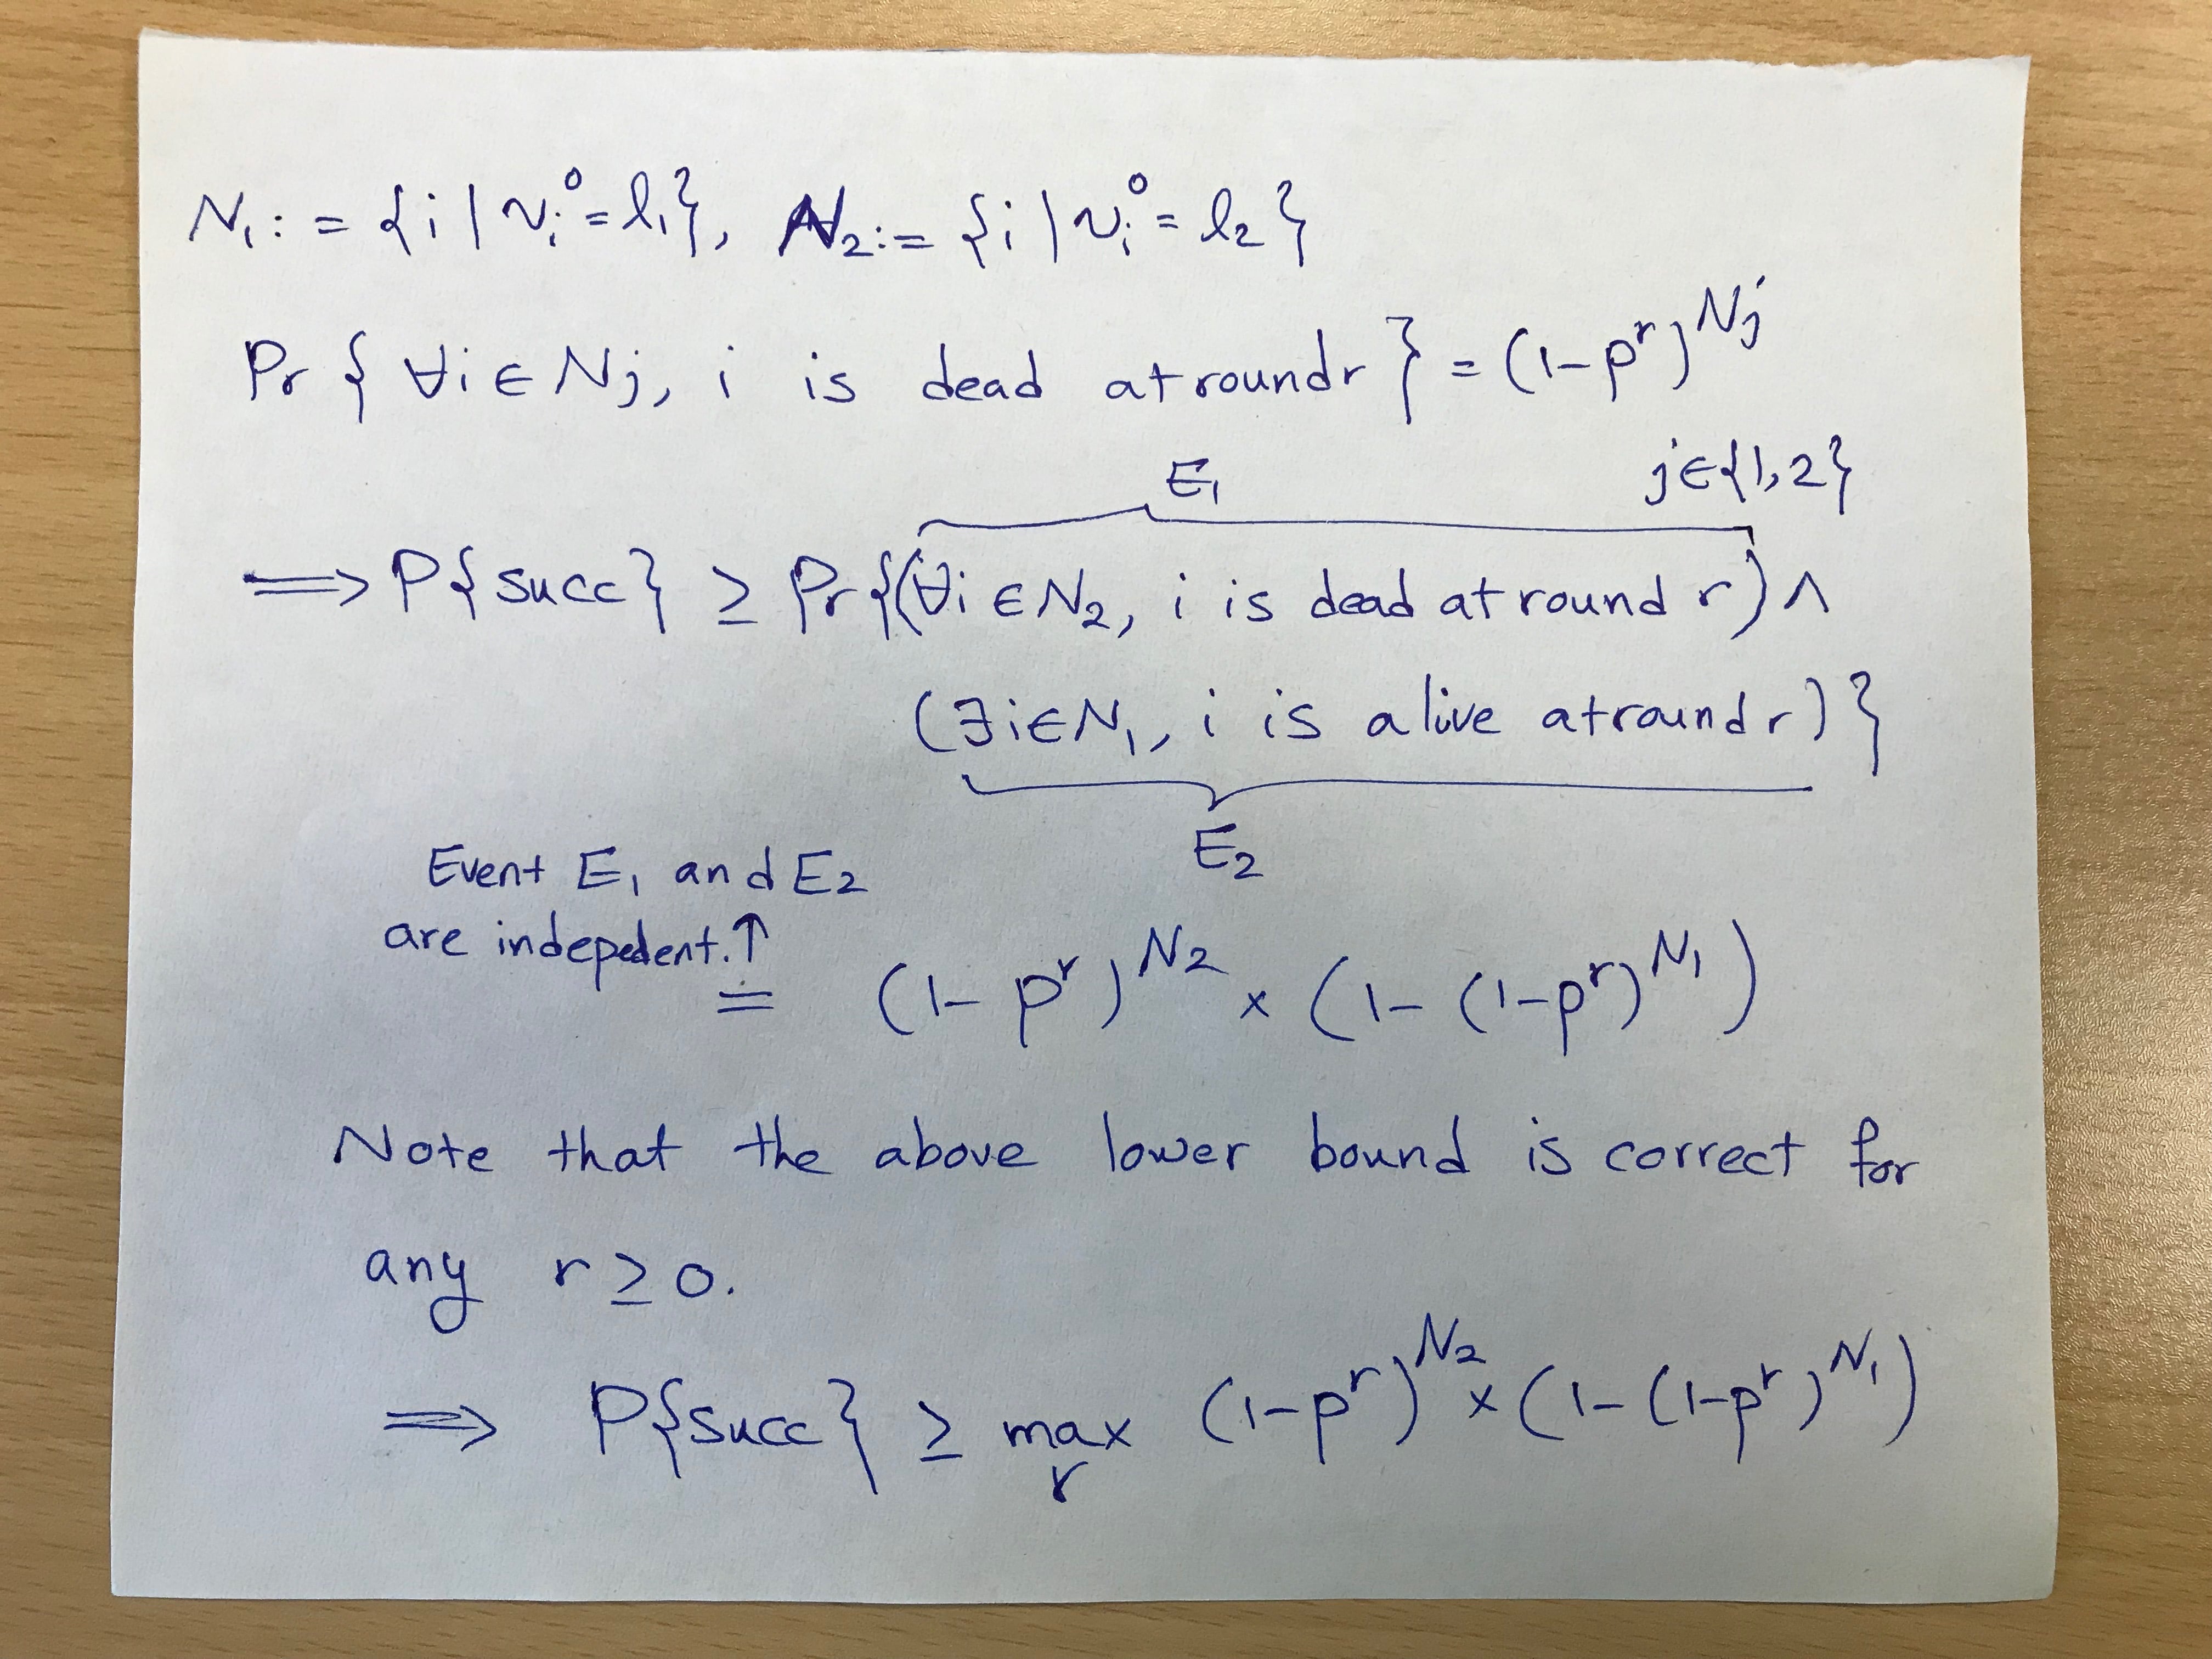 N₁ := {i | vᵢ⁰ = l₁}, N₂ := {i | vᵢ⁰ = l₂}
Pr { ∀i ∈ Nj, i is dead at round r } = (1-p^r)^Nj
j∈{1,2}
E₁
⟹ P{succ} ≥ Pr{(∀i ∈ N₂, i is dead at round r) ∧
(∃i∈N₁, i is alive at round r)}
E₂
Event E₁ and E₂
are indepedent.↑
= (1-p^r)^N₂ × (1-(1-p^r)^N₁)
Note that the above lower bound is correct for
any r ≥ 0.
⟹ P{succ} ≥ max (1-p^r)^N₂ × (1-(1-p^r)^N₁)
r